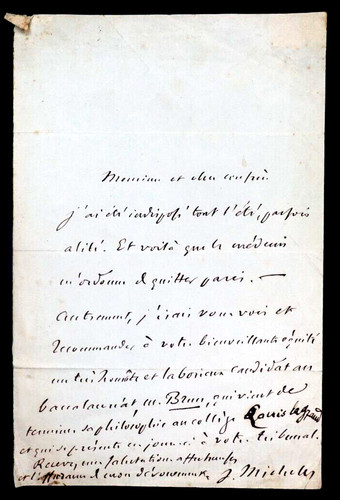 Monsieur et cher confrère
j'ai été indisposé tout l'été, parfois
alité. Et voilà que le médecin
m'ordonne de quitter paris. —
Autrement, j'irais vous voir et
recommander à votre bienveillante équité
un très honnête et laborieux candidat au
baccalauréat m. Brun, qui vient de
terminer sa philosophie au collège Louis legrand
et qui se présente en ce jour ci à votre tribunal.
Recevez mes salutations affectueuses
et l'assurance de mon dévouement J. Michelet